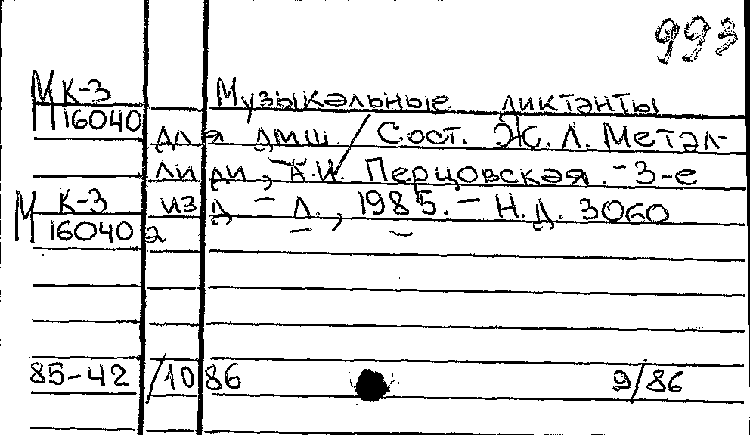 993
М К-3 Музыкальные диктанты
16040 для дмш / Сост. Ж. Л. Метал-
лиди, А.И. Перцовская. - 3-е
М К-3 изд - Л., 1985. - Н.д. 3060
16040 а
85-42 /10 86 9/86